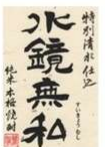 特別清水仕込
水鏡無私
すいきょうむし
純米本格焼酎